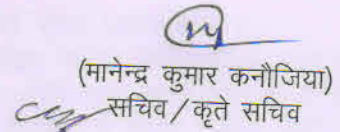 (मानेन्द्र कुमार कनौजिया)
सचिव/कृते सचिव